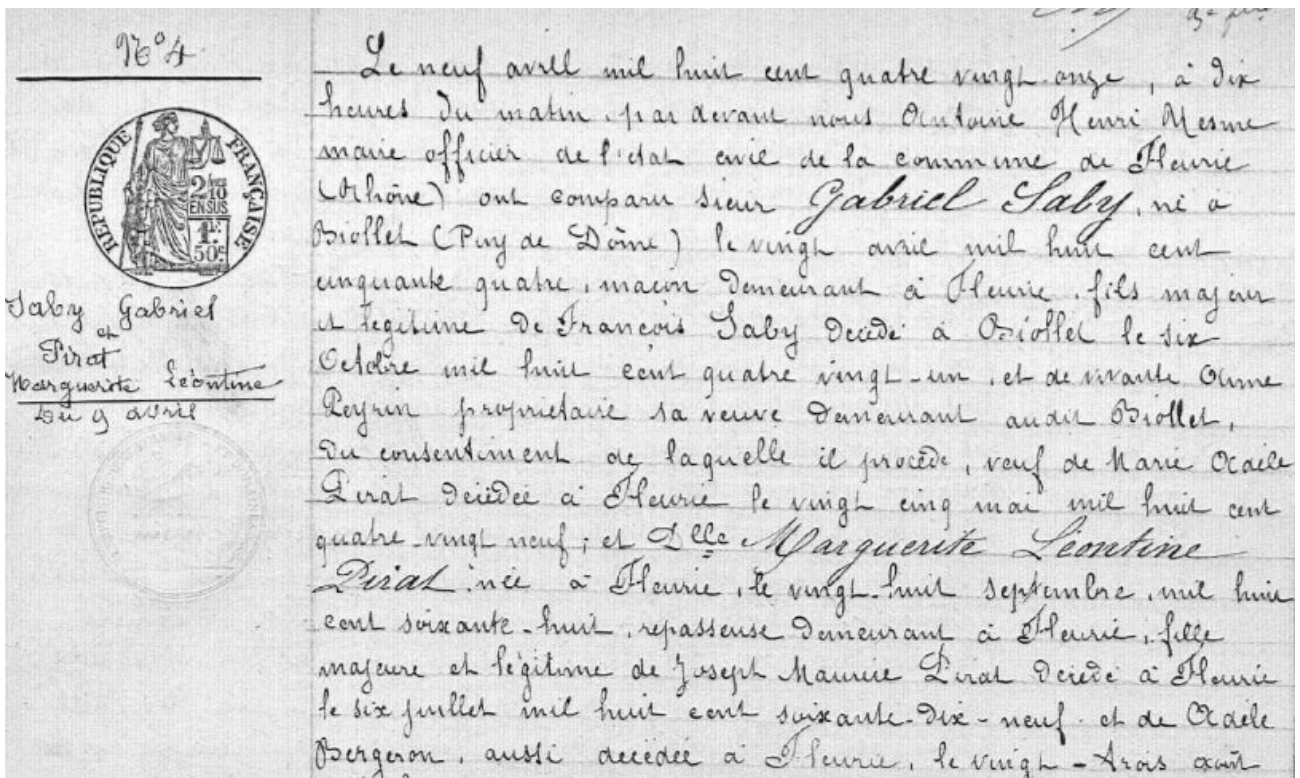 N° 4
RÉPUBLIQUE FRANÇAISE
2/10
EN SUS
1F.
50c.
Saby Gabriel
et
Pirat
Marguerite Léontine
Du 9 avril
Le neuf avril mil huit cent quatre vingt onze, à dix
heures du matin par devant nous Antoine Henri Mesme
maire officier de l'état civil de la commune de Fleurie
(Rhône) ont comparu sieur Gabriel Saby, né à
Biollet (Puy de Dôme) le vingt avril mil huit cent
cinquante quatre, maçon demeurant à Fleurie, fils majeur
et légitime de François Saby décédé à Biollet le six
Octobre mil huit cent quatre vingt-un, et de vivante
Peyrin propriétaire sa veuve demeurant audit Biollet,
du consentiment de laquelle il procède, veuf de Marie Adèle
Pirat décédée à Fleurie le vingt cinq mai mil huit cent
quatre-vingt neuf; et Dlle Marguerite Léontine
Pirat, née à Fleurie, le vingt-huit septembre, mil huit
cent soixante-huit, repasseuse demeurant à Fleurie, fille
majeure et légitime de Joseph Maurice Pirat décédé à Fleurie
le six juillet mil huit cent soixante-dix-neuf et de Adèle
Bergeron, aussi décédée à Fleurie, le vingt-trois août